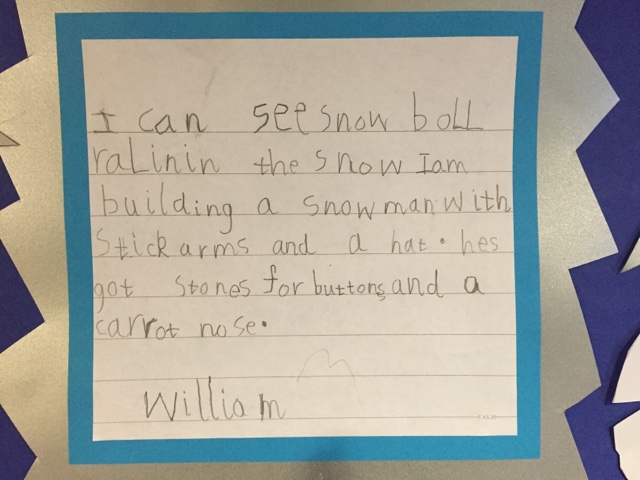 I can see snow boll
raLinin the snow Iam
building a snowman with
stick arms and a hat. hes
got stones for buttons and a
carrot nose.
William